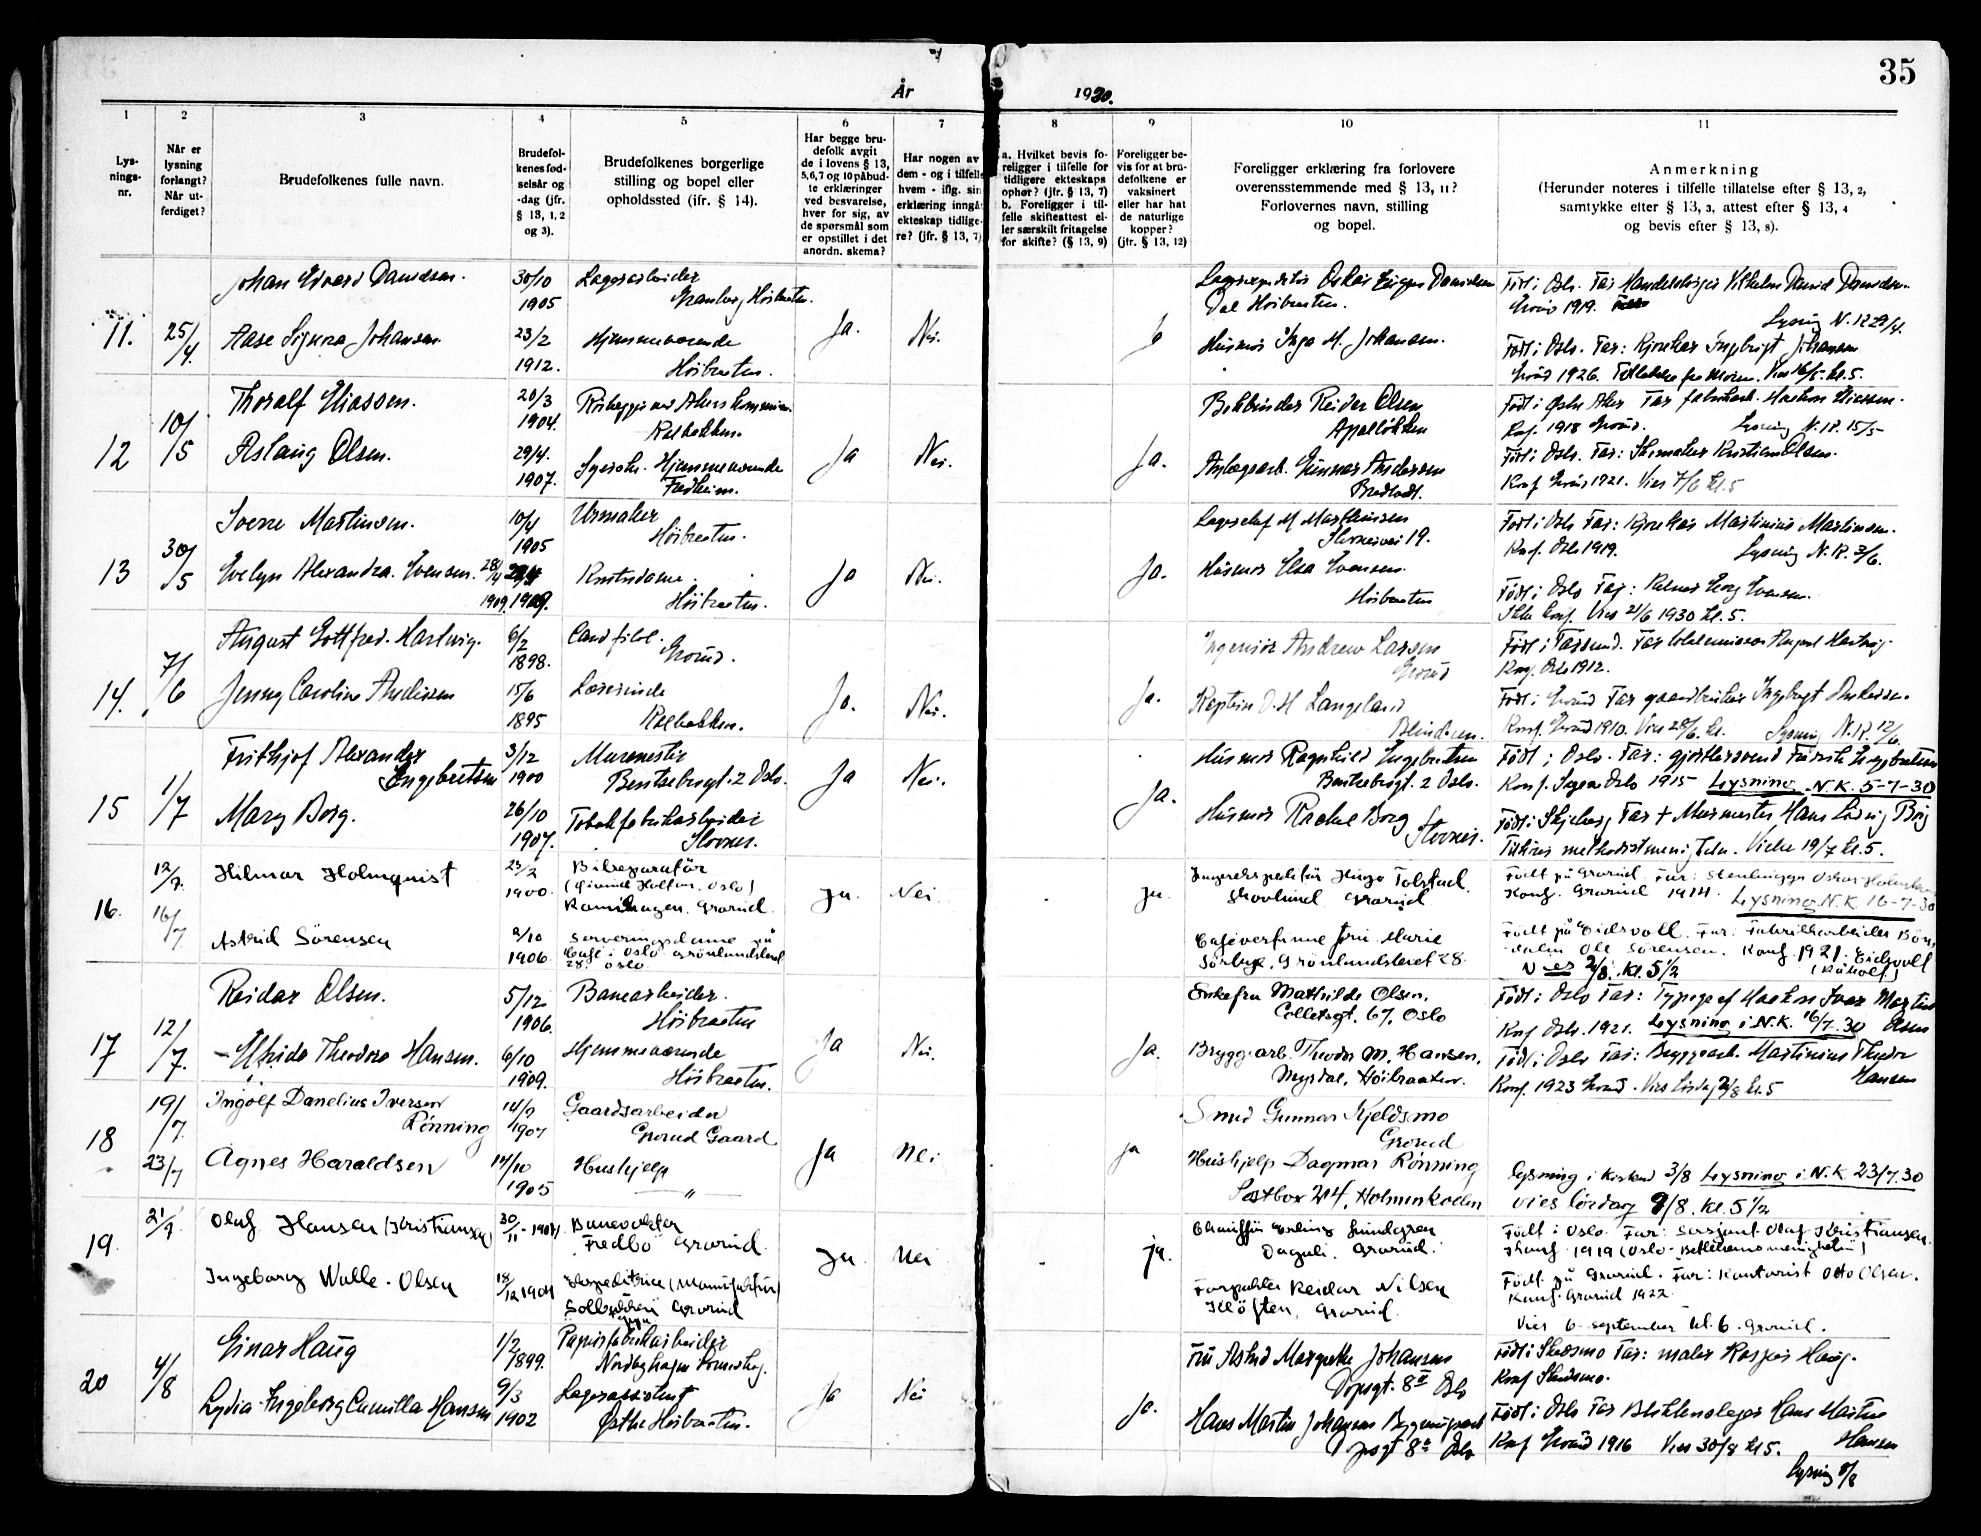 35
År 1930.
1 2 3 4 5 6 7 8 9 10 11
Lys-
nings-
nr.
Når er
lysning
forlangt?
Når ut-
ferdiget?
Brudefolkenes fulle navn.
Brudefol-
kenes fød-
selsår og
-dag (jfr.
§ 13, 1, 2
og 3).
Brudefolkenes borgerlige
stilling og bopel eller
opholdssted (ifr. § 14).
Har begge bru-
defolk avgit
de i lovens § 13,
5,6,7 og 10 påbud-
te erklæringer
ved besvarelse,
hver for sig, av
de spørsmål som
er opstillet i det
anordn. skema?
Har nogen av
dem - og i tilfelle
hvem - iflg. sin
erklæring inngå-
ekteskap tidlige-
re? (jfr. § 13, 7)
a. Hvilket bevis fo-
religger i tilfelle for
tidligere ekteskaps
ophør? (jfr. § 13, 7)
b. Foreligger i til-
felle skifteattest el-
ler særskilt fritagelse
for skifte? (§ 13, 9)
Foreligger be-
vis for at bru-
defolkene er
vaksinert
eller har hat
de naturlige
kopper?
(jfr. § 13, 12)
Foreligger erklæring fra forlovere
overensstemmende med § 13, 11?
Forlovernes navn, stilling
og bopel.
Anmerkning
(Herunder noteres i tilfelle tillatelse efter § 13, 2,
samtykke efter § 13, 3, attest efter § 13, 4
og bevis efter § 13, 8).
11. 25/4.
Johan Edvard Danielsen.
30/10
1905
Lagerarbeider
Granberg, Høibraaten.
Ja. Nei.
Lagerexpeditør Oskar Danielsen
Dal Høibraaten.
Født i Oslo. Far Handelsborger Vilhelm David Danielsen
Grorud 1919.
Lysning N.K 29/4.
Aase Signora Johansen
23/2
1912.
Hjemmeværende
Høibraaten.
Husmor Inga M. Johansen.
Født i Oslo. Far: Kjørekar Ingebrigt Johansen
Grorud 1926. Tilladelse fra Moren. Vies 16/5. kl. 5.
12 10/5
Thoralf Eliassen.
20/3
1904.
Kalbakken.
Ja Nei. Ja.
Bokbinder Reidar Olsen
Apalløkken
Født i Aker Far fabrikarb. Haakon Eliassen.
Konf. 1918 Grorud. Lysning N.K. 15/5
Aslaug Olsen.
29/4.
1907.
Syerske. Hjemmeværende
Fredheim.
Anlægsarb. Gunnar Andersen
Bredtvedt.
Født i Oslo. Far: Skomaker Kristian Olsen.
Konf Grorud 1921. Vies 7/6 kl. 5
13 30/5
Sverre Martinsen.
10/4
1905
Urmaker
Høibraaten.
Ja Nei. Ja.
Lagerchef M Marthinsen
Stovnerveien 19.
Født i Oslo Far: Kjørekar Martinius Martinsen.
Konf. Oslo 1919. Lysning N.K. 3/6.
Evelyn Alexandra Evensen.
28/4
1909.
Kontordame.
Høibraaten.
Husmor Elsa Evensen.
Høibraaten
Født i Oslo Far: Evensen.
Ikke konf. Vies 21/6 1930 kl. 5.
14. 7/6
August Gottfred Hartvig.
6/2
1898.
Cand filol.
Grorud.
Ja. Nei. Ja.
Ingeniør Andrew Larsen
Grorud
Konf. Oslo 1912.
Jenny Caroline Andersen
15/6
1895
Lærerinde
Kalbakken.
Kaptein O.H Langeland
Blindern.
Født i Grorud Far gaardbruker Ingebrigt Andersen.
Konf. Grorud 1910. Vies 28/6. kl. Lysning N.K. 12/6
15 1/7
Frithjof Alexander
Engebretsen
3/12
1900
Murmester
Bentsebrogt. 2 Oslo.
Ja Nei. Ja.
Husmor Ragnhild Engebretsen
Bentsebrogt. 2 Oslo.
Født i Oslo. Far: gjørtlersvend Fredrik Engebretsen
Konf. Sagene Oslo 1915 Lysning N.K. 5-7-30
Mary Borg.
26/10
1907.
Tobakfabrikarbeider
Stovner.
Husmor Rachel Borg
Stovner.
Født i Skjeberg Far + Murmester Hans Ludvig Borg
Tilhører methodistmenigheten. Viedes 19/7 kl. 5.
16. 12/7. 16/7
Hilmar Holmquist
23/2
1900.
Bilreparatør
Grorud.
Ja. Nei. Ja.
Hugo Tolstad
Skovlund Grorud
Født på Grorud. Far: Stenhugger Oskar Holmquist
Konf. Grorud 1914. Lysning N.K. 16-7-30
Astrid Sørensen
2/10
1906
Serveringsdame på
Café i Oslo Grønlandsleret
28. Oslo
Cafévertinne fru Marie
Grønlandsleret 28.
Født på Eidsvoll. Far: Fabrikkarbeider
Ole Sørensen. Konf. 1921. Eidsvoll
Vies 2/8. kl. 5 1/2
17 12/7.
Reidar Olsen.
5/12
1906.
Banearbeider.
Høibraaten
Ja Nei. Ja.
Enkefru Mathilde Olsen.
Colletsgt. 67, Oslo
Født i Oslo Far: Typograf Haakon Ivar Martin
Olsen
Konf Oslo. 1921. Lysning i N.K. 16/7.30
Theodora Hansen.
6/10
1909.
Hjemmeværende
Høibraaten.
Bryggearb. Theodor M. Hansen.
Myrdal, Høibraaten.
Født i Oslo Far: Bryggearb. Martinius Theodor
Hansen
Konf. 1923 Grorud. Vies Lørdag 2/8 kl. 5
18 19/7. 23/7
Ingolf Danelius Iversen
Rønning
14/9
1907
Gaardsarbeider
Grorud Gaard
Ja Nei Ja
Smed Gunnar Kjeldsmo
Grorud
Agnes Haraldsen
17/10
1905
Hushjelp
— " —
Hushjelp Dagmar Rønning
Postbox 214, Holmenkollen
Lysning i 3/8 Lysning i N.K. 23/7.30
Vies Lørdag 9/8. kl. 5 1/2
19. 21/7.
Olaf Hansen (Kristiansen)
30/11 - 1904
Banevokter
"Fredbo" Grorud.
Ja. Nei Ja.
Chauffør Erling Lundgren
Dagali. Grorud.
Født i Oslo. Far: Sersjant Olaf Kristiansen.
Konf. 1919 (Oslo - Betlehemsmenigheten)
Ingeborg Walle-Olsen
18/12 1904
Expeditrice (Manufaktur)
Solbakken Grorud
Reidar Nilsen
Kløften, Grorud.
Født på Grorud. Far: Kontorist Otto Olsen.
Konf. Grorud 1922.
Vies 6 september kl. 6. Grorud.
20 4/8
Einar Haug
1/2
1899.
Papirfabrikarbeider
Ja Nei Ja.
Fru Astrid Margrethe Johansen
Dopsgt. 8 II Oslo
Født i Skedsmo Far: maler Kasper Haug.
Konf Skedsmo.
Lydia Ingeborg Camilla Hansen
9/3
1902
Lagerassistent
Østre Høibraaten.
Hans Martin Johansen
Dopsgt 8 Oslo
Født i Oslo Far Blikkenslager Hans Martin
Hansen
Konf Grorud 1916 Vies 30/8 kl 5.
Lysning 8/8